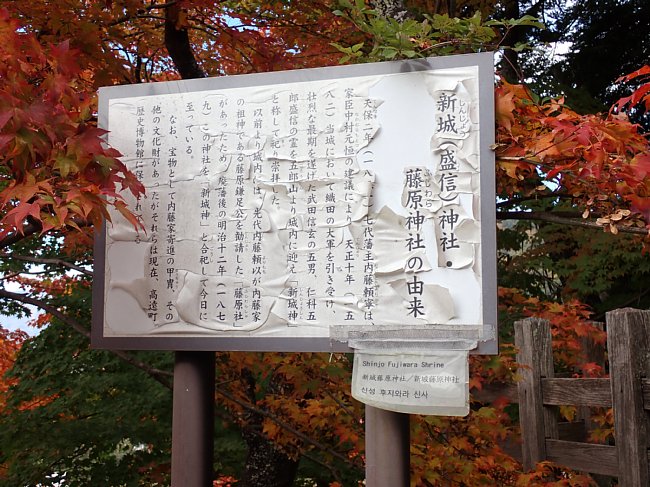 新城(盛信)神社・
しんじょう
藤原神社の由来
ふじわら
天保二年(一八三一)七代藩主内藤頼寧は、
家臣中村元恒の建議により、天正十年(一五
八二)当城において織田の大軍を引き受け、
壮烈な最期を遂げた武田信玄の五男、仁科五
郎盛信の霊を五郎山より城内に迎え「新城神」
と称して祀り崇拝した。
以前より城内には、先代内藤頼以が内藤家
の祖神である藤原鎌足公を勧請した「藤原社」
があったため、廃藩後の明治十二年(一八七
九)この神社を「新城神」と合祀して今日に
至っている。
なお、宝物として内藤家寄進の甲冑、その
他の文化財があったがそれらは現在、高遠町
歴史博物館に保
されて
る
Shinjo Fujiwara Shrine
新城藤原神社/新城藤原神社
신성 후지와라 신사